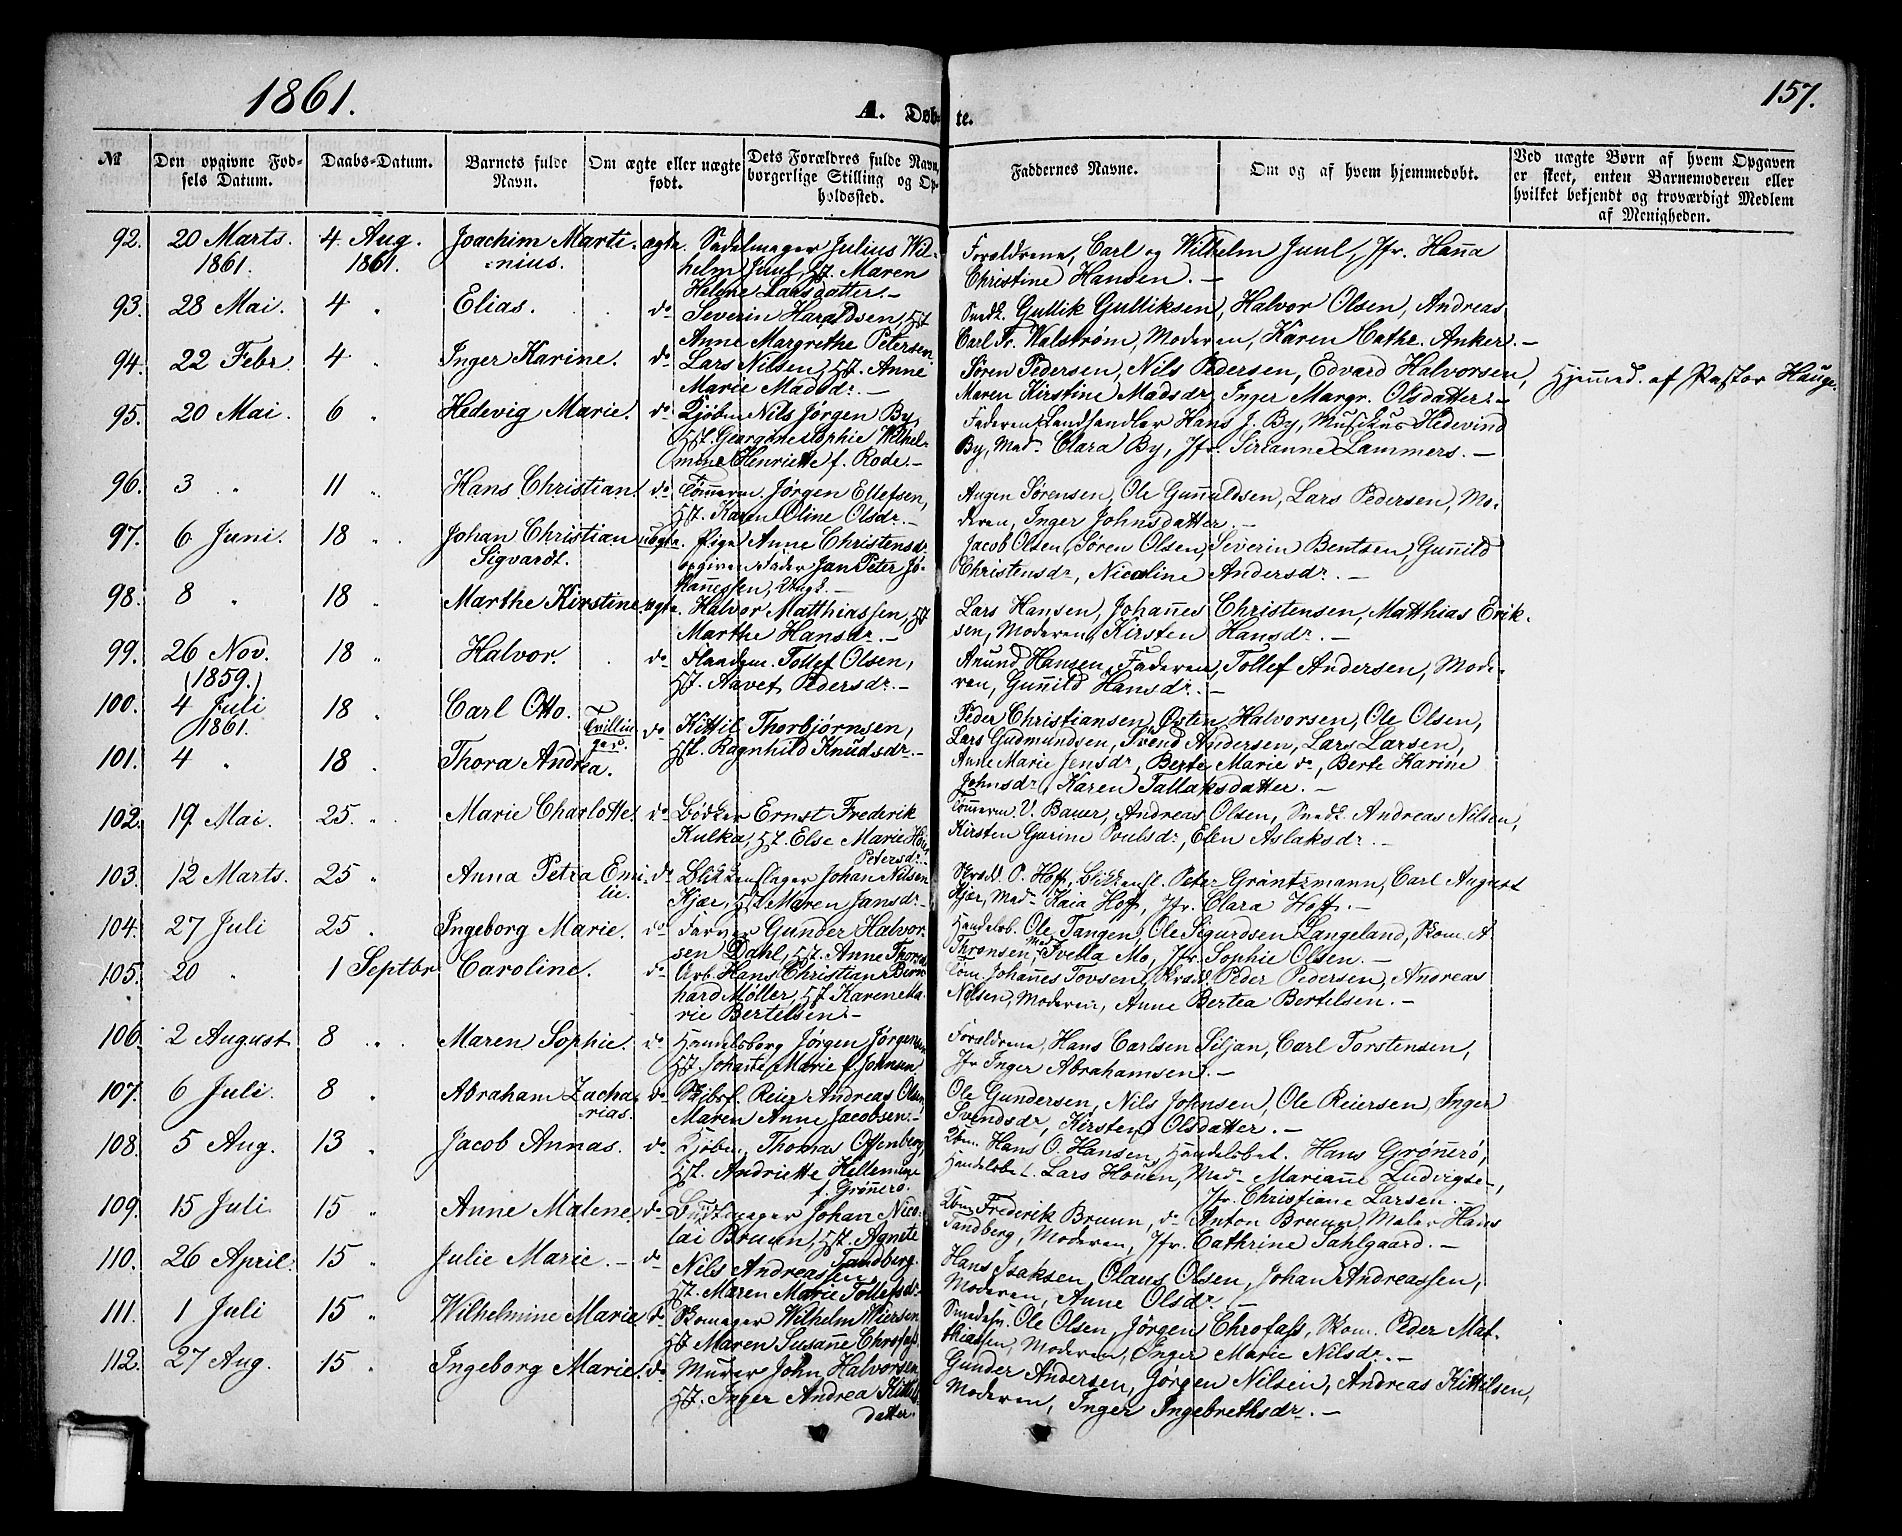 1861.
A. Døb-
te.
157.
№
Den opgivne Fød-
sels Datum.
Daabs-Datum.
Barnets fulde
Navn.
Om ægte eller uægte
født.
Dets Forældres fulde Navn,
borgerlige Stilling og Op-
holdssted.
Faddernes Navne.
Om og af hvem hjemmedøbt.
Ved uægte Børn af hvem Opgaven
er skeet, enten Barnemoderen eller
hvilket bekjendt og troværdigt Medlem
af Menigheden.
92. 20 Marts. 1861. 4 Aug. 1861. Joachim Marti-
nius. ægte. Sadelmager Julius Wil-
helm Juul, Hst. Maren
Helene Larsdatter.-
Forældrene, Carl og Wilhelm Juul, Jfr. Hanna
Christine Hansen.-
93. 28 Mai. 4 " Elias. do Severin Haraldsen, Hst
Anne Margrethe Petersen
Snedk. Gullik Gulliksen, Halvor Olsen, Andreas
Carl Fr. Walstrøm, Moderen, Karen Cathe. Anker.-
94. 22 Febr. 4 " Inger Karine. do Lars Nilsen, Hst. Anne
Marie Madsdr.-
Søren Pedersen, Nils Pedersen, Edvard Halvorsen,
Maren Kirstine Madsdr, Inger Margr. Olsdatter.-
Hjemmed. af Pastor Hauge.
95. 20 Mai. 6 " Hedevig Marie. do Kjøbm Nils Jørgen By,
Hst. Georgine Sophie Wilhel-
mine Henriette f. Rode.-
Faderen, Landhandler Hans J. By, Musikus Hedevind
By, Mad. Clara By, Jfr. Sirianne Lammers.-
96. 3 " 11 " Hans Christian. do Tømmerm. Jørgen Ellefsen,
Hst. Karen Oline Olsdr.-
Augen Sørensen, Ole Gunnuldsen, Lars Pedersen, Mo-
deren, Inger Johnsdatter.-
97. 6 Juni. 18 " Johan Christian
Sigvardt. uægte. Pige Anne Christensdr.
opgiven Fader Jan Peter Jo-
hannessen, Ungk.-
Jacob Olsen, Søren Olsen, Severin Bentsen, Gunnild
Christensdr, Nicoline Andersdr.-
98. 8 " 18 " Marthe Kirstine. ægte. Halvor Matthiassen, Hst
Marthe Hansdr.-
Lars Hansen, Johannes Christensen, Matthias Erik-
sen, Moderen, Kirsten Hansdr.-
99. 26 Nov. (1859.) 18 " Halvor. do Tollef Olsen,
Hst. Aavet Pedersdr.-
Anund Hansen, Faderen, Tollef Andersen, Mode-
ren, Gunnild Hansdr.-
100. 4 Juli 1861. 18 " Carl Otto. Tvillin-
ger. do Kittil Thorbjørnsen,
Hst. Ragnhild Knudsdr.-
Peder Christiansen, Østen Halvorsen, Ole Olsen,
Lars Gudmundsen, Svend Andersen, Lars Larsen,
101. 4 " 18 " Thora Andrea.
Anne Marie Jensdr, Berte Marie do, Berte Karine
Johnsdr, Karen Tallaksdatter.-
102. 19 Mai. 25. " Marie Charlotte. do Bødker Ernst Frederik
Kulka, Hst. Else Marie
Petersdr.-
Tømmerm. V. Bauer, Andreas Olsen, Snedk. Andreas Nilsen,
Kirsten Gurine Poulsdr, Elen Aslaksdr.-
103. 12 Marts. 25 " Anna Petra Emi-
lie. do Blikkenslager Johan Nilsen
Kjær, Hst Maren Jansdr.-
Skrædd. O. Hoff, Blikkensl. Peter Grüntzmann, Carl August
Kjær, Mad. Kaia Hoff, Jfr. Clara Hoff.-
104. 27 Juli 25 " Ingeborg Marie. do Farver Gunder Halvor-
sen Dahl, Hst. Anne
Handelsb. Ole Tangen, Ole Sigurdsen Langeland, Skom. A
Thronsen, Mad. Svella Mo, Jfr. Sophie Olsen.-
105. 20 " 1 Septbr Caroline. do Arb. Hans Christian Bern-
hard Møller, Hst Karen Ma-
rie Bertelsen.-
Tøm. Johannes Tovsen, Skræd. Peder Pedersen, Andreas
Nilsen, Moderen, Anne Bertea Bertelsen.-
106. 2 August 8 " Maren Sophie. do Handelsborg Jørgen Jørgensen
Hst. Johanne Marie f. Johnsen
Forældrene, Hans Carlsen Siljan, Carl Torstensen,
Jfr Inger Abrahamsen.-
107. 6 Juli. 8 " Abraham Zacha-
rias. do Skibsf. Reier Andreas Olsen
Maren Anne Jacobsen.-
Ole Gundersen, Nils Johnsen, Ole Reiersen, Inger
Svendsdr, Kirsten Olsdatter.-
108. 5 Aug. 13 " Jacob Annas. do Kjøbm. Thomas Offenberg,
Hst. Andriette Hellemine
f. Grønnerö.
Kbm. Hans O. Hansen, Handelsbet. Hans Grønnerö,
Handelsbet. Lars Houen, Mad- Marianne Ludvigse-,
Jfr. Christiane Larsen.-
109. 15 Juli. 15 " Anne Malene. do Johan Nico-
lai Bruun, Hst. Agnete
Tandberg.
Kbm Frederik Bruun, do Anton Bruun, Maler Hans
Tandberg, Moderen, Jfr. Cathrine Sahlgaard.-
110. 26 April. 15 " Julie Marie.- do Nils Andreassen
Hst. Maren Marie Tollefsdr-
Hans Isaksen, Olaus Olsen, Johan Andreassen,
Moderen, Anne Olsdr.-
111. 1 Juli 15 " Wilhelmine Marie do Skomager Wilhelm Wiersen
Hst Maren Susanne Chrofass
Smedesv. Ole Olsen, Jørgen Chrofass, Skom. Peder Mat-
thiassen, Moderen, Inger Marie Nilsdr.-
112. 27 Aug. 15 " Ingeborg Marie. do Murer John Halvorsen
Hst. Inger Andrea Kittils-
datter.
Gunder Andersen, Jørgen Nilsen, Andreas Kittilsen,
Moderen, Inger Ingebrethsdr.-